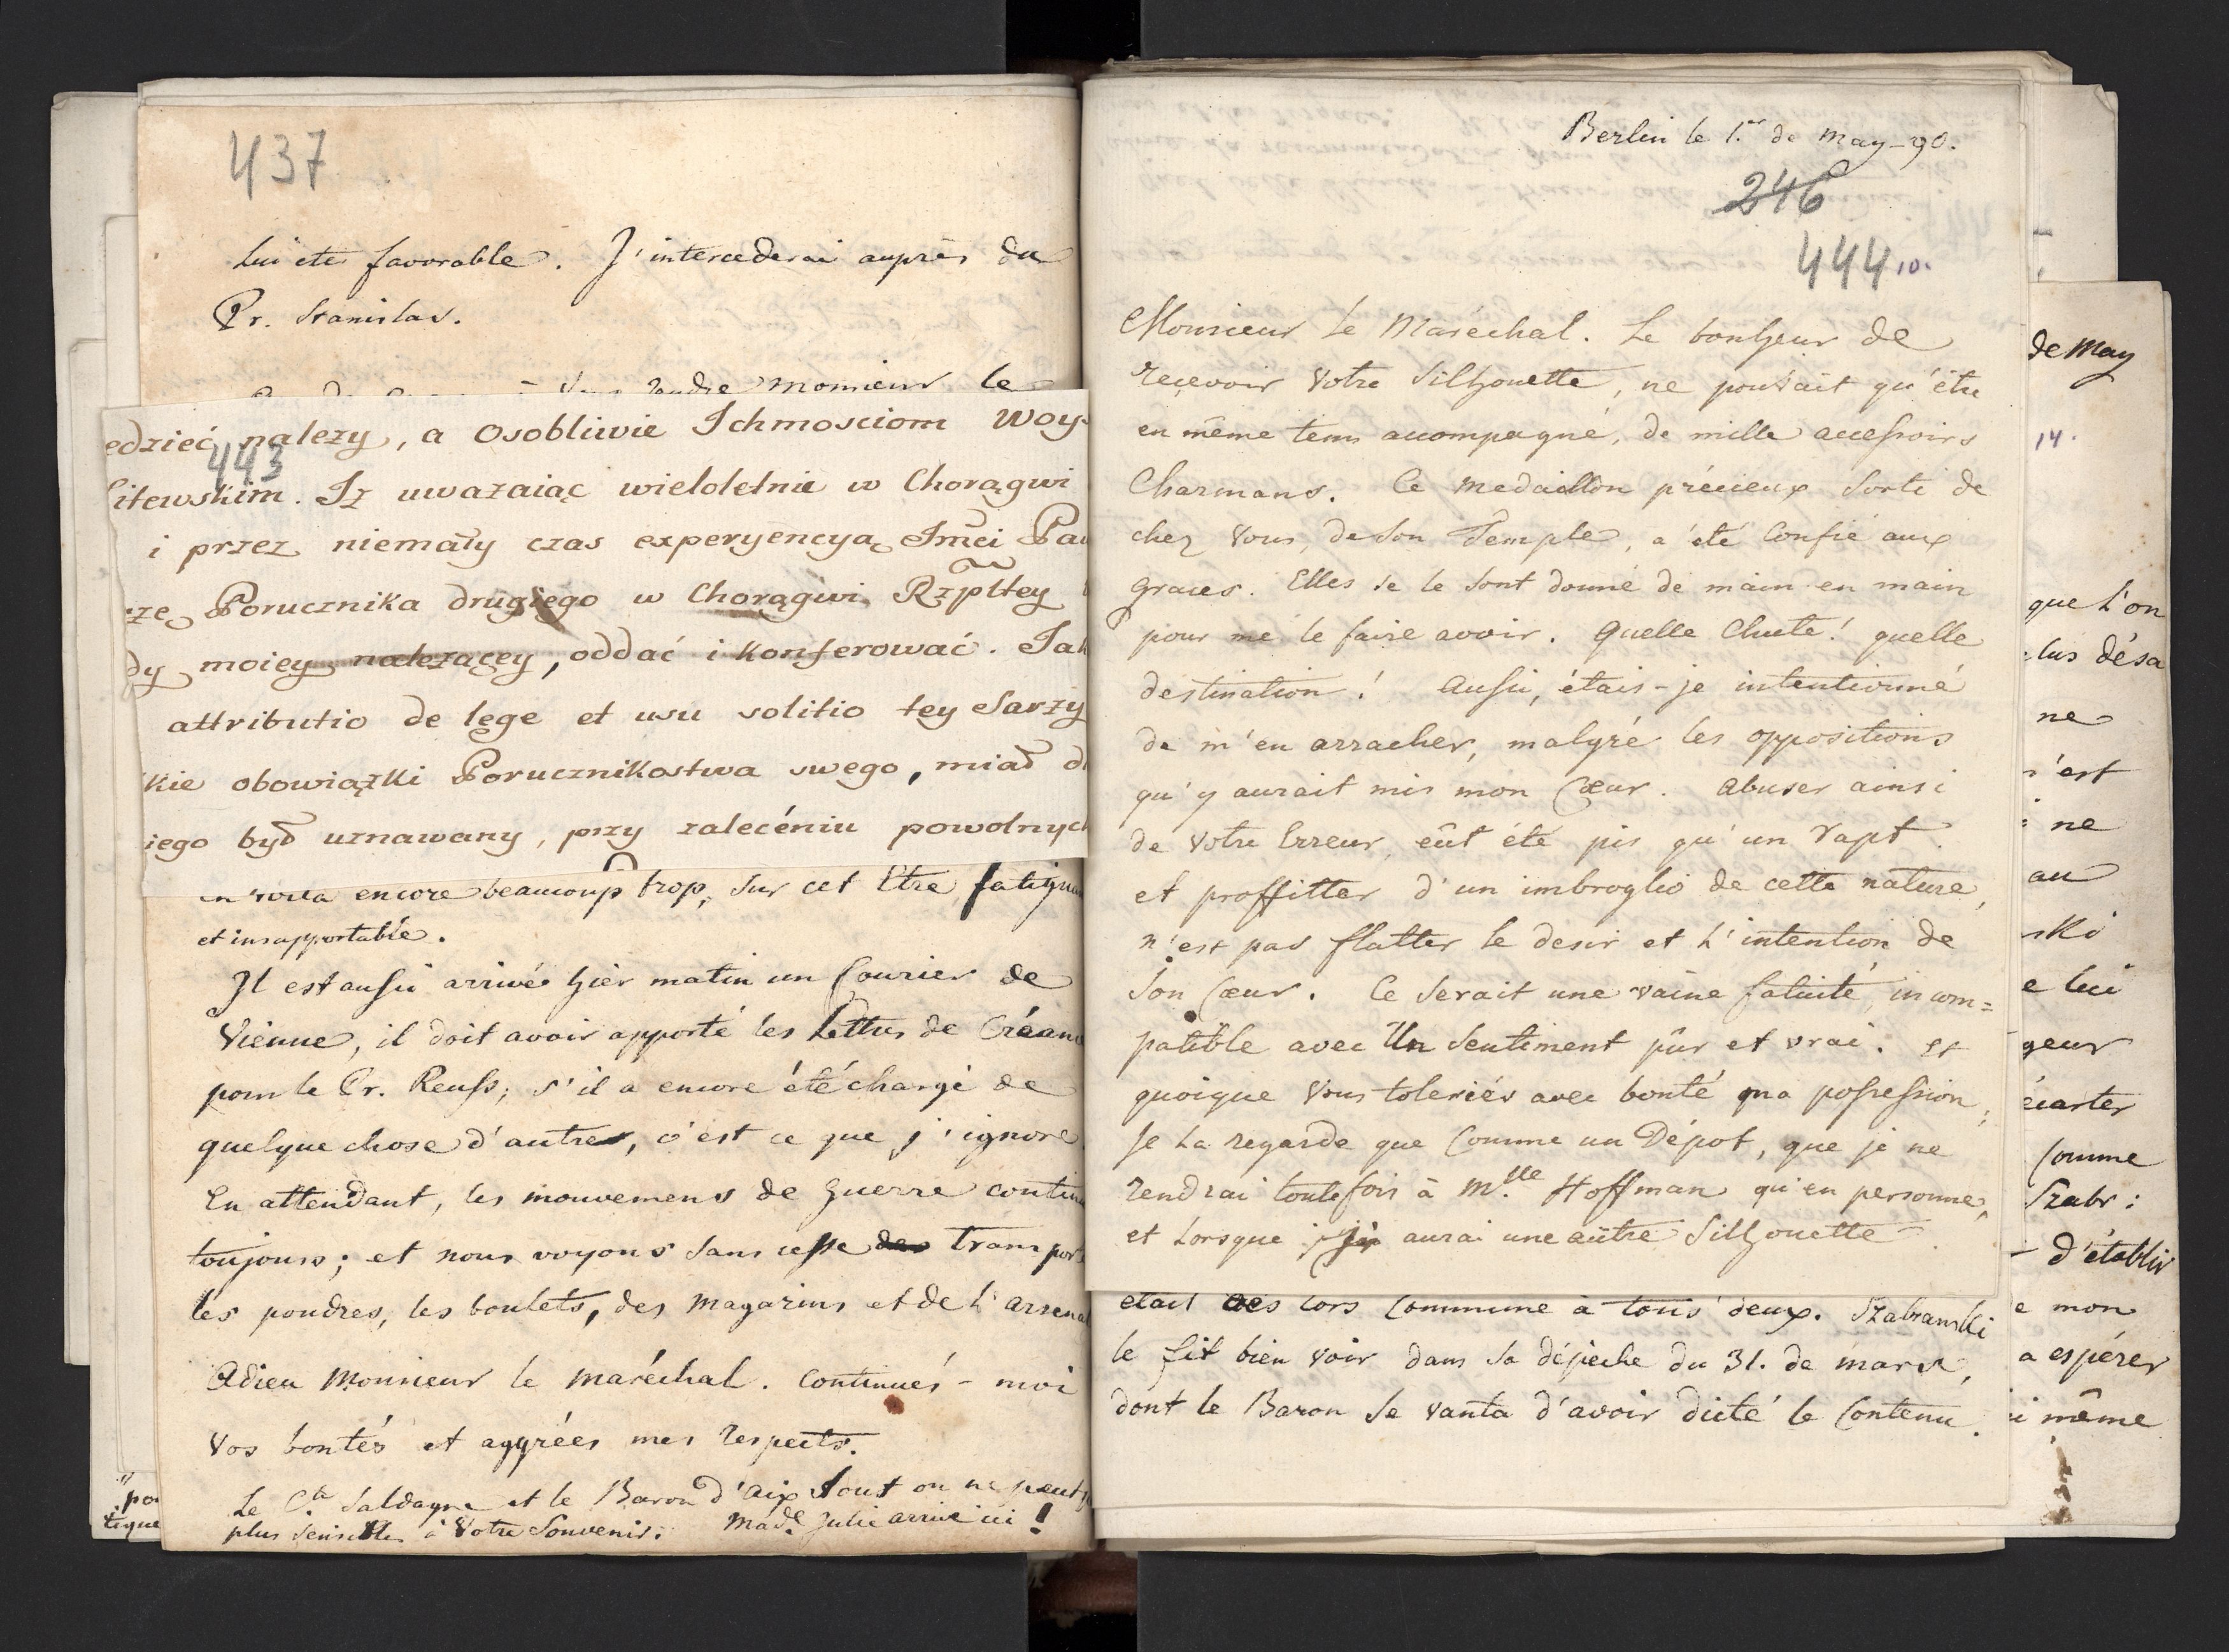 437
lui etre favorable. J'intercederai auprès du
Pr. Stanislas.
rendre Monsieur le
edzieć nalezy, a Osobliwie Ichmosciom Woy-
443
litewskim. Iz uwazaiąc wieloletnie w Chorągwi
i przez niemały czas experyencyą Jmci Pan
Porucznika drugiego w Chorągwi Rzpltey
dy moiey nalezącey, oddać i konferować. Jak
attributio de lege et usu solitio tey Sarzy
kie obowiązki Porucznikostwa swego, miał d
iego był uznawany, przy zaleceniu powolnych
en voila encore beaucoup trop, sur cet Etre fatigua
et insupportable.
Il est aussi arrivé hier matin un Courier de
Vienne, il doit avoir apporté les Lettres de Créanc
pour le Pr. Reuss; s'il a encore été chargé de
quelque chose d'autre, c'est ce que j'ignore
En attendant, les mouvemens de guerre contin
toujours; et nous voyons sans cesse des transpor
les poudres, les boulets, des Magazins et de l'arsenal
Adieu Monsieur le Maréchal. Continués-moi
vos bontés et aggrées mes respects.
Le Cte Saldagne et le Baron d'Aix sont on ne peut
plus sensibles à votre Souvenir. Made Julie arrive ici!
"po
tique
Berlin le 1.er de May-90.
246
444 10.
Monsieur le Maréchal. Le bonheur de
reçevoir votre Silhouette, ne pouvait qu'étre
en même tems accompagné, de mille accessoirs
Charmans. Ce Medaillon précieux sorti de
chez vous, de son Temple, a été confié aux
graces. Elles se le sont donné de main en main
pour me le faire avoir. Quelle Chute! quelle
destination! Aussi, étais-je intentionné
de m'en arracher, malgré les oppositions
qu'y aurait mis mon Cœur. Abuser ainsi
de votre Erreur, eût été pis qu'un rapt.
et proffitter d'un imbroglio de cette nature,
n'est pas flatter le desir et l'intention de
son Cœur. Ce serait une vaine fatuité, incom=
patible avec Un sentiment pûr et vrai. Et
quoique vous toleriés avec bonté ma possession,
je la regarde que Comme un Dépot, que je ne
rendrai toutefois à Mlle Hoffman qu'en personne,
et lorsque j'y aurai une autre Silhouette.
était des lors Commune à tous deux. Szabranski
le fit bien voir dans sa dépeche du 31. de mars,
dont le Baron se vanta d'avoir dicté le Contenu.
de May
14.
que l'on
lus désa
ne
n'est
ne
au
ski
e lui
geur
écarter
Comme
Szabr:
d'établir
e mon
a espérer
i même